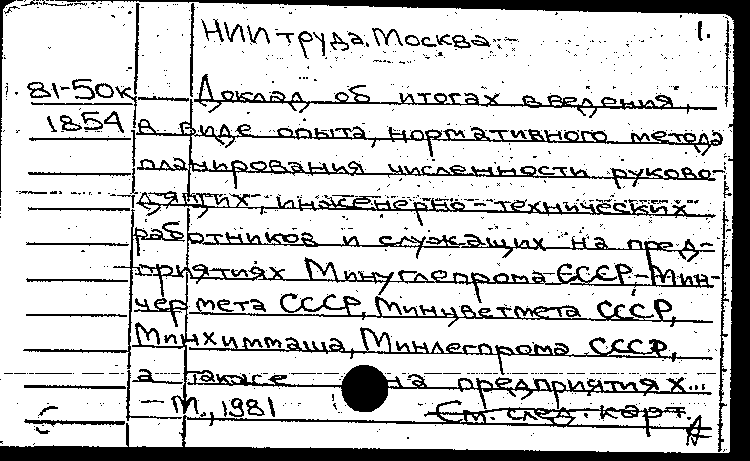 НИИ труда. Москва. 1.
81-50к Доклад об итогах введения,
1854 в виде опыта, нормативного метода
планирования численности руково-
дящих, инженерно-технических
работников и служащих на пред-
приятиях Минуглепрома СССР, Мин-
чермета СССР, Минцветмета СССР,
Минхиммаша, Минлегпрома СССР,
а также на предприятиях...
— М., 1981 См. след. карт.